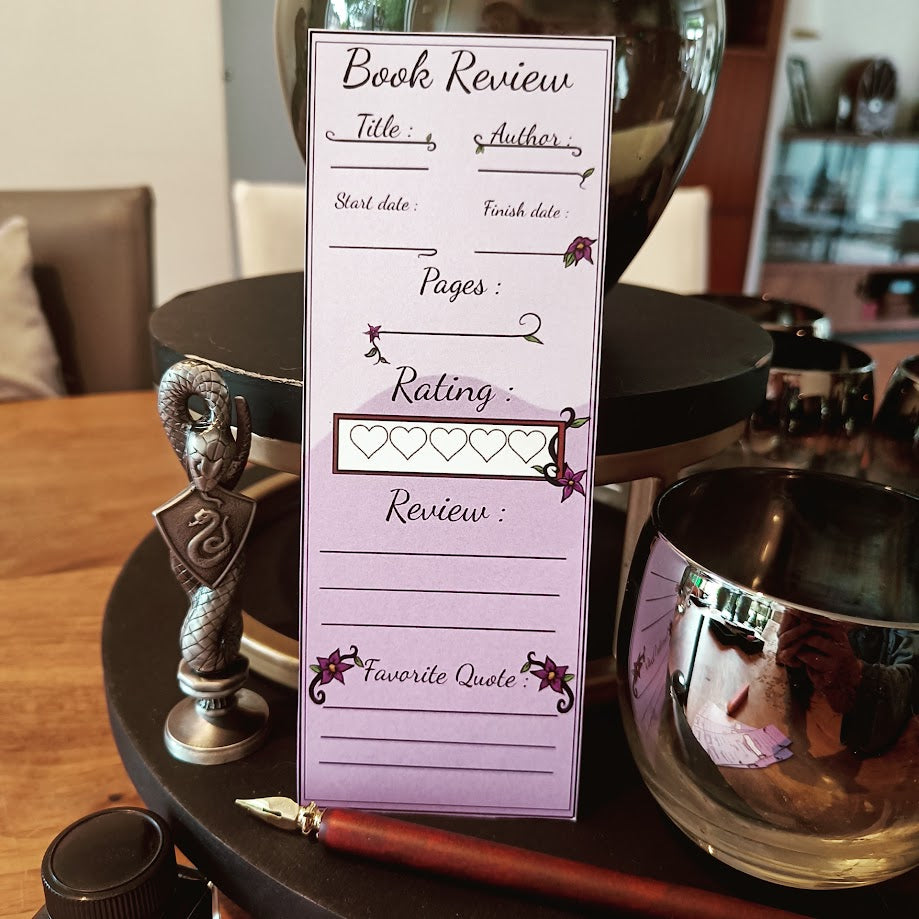 Book Review
Title : Author :
Start date : Finish date :
Pages :
Rating :
Review :
Favorite Quote :